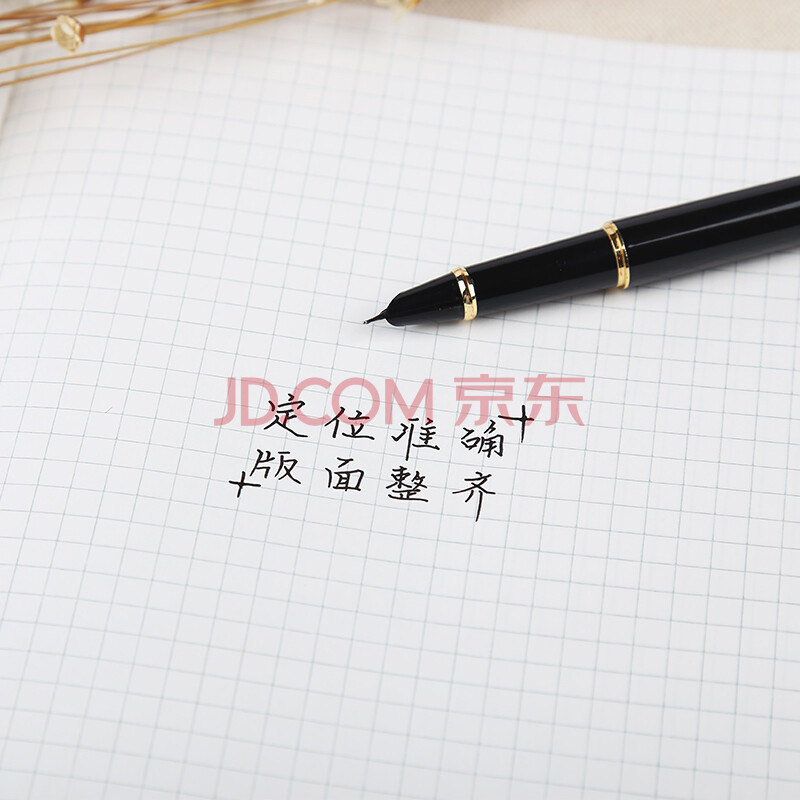 JD.COM 京东
定位准确
版面整齐